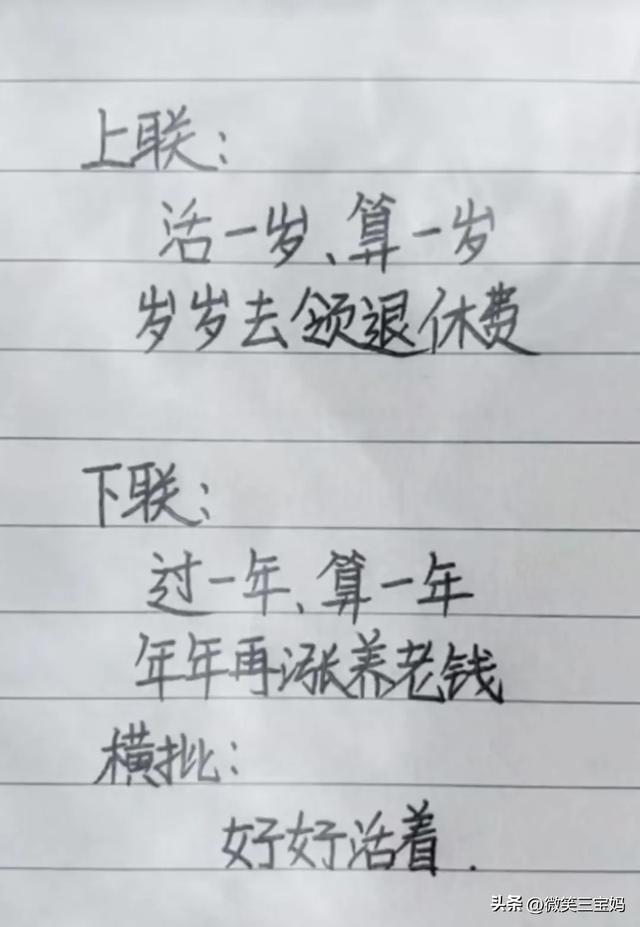 上联：
活一岁、算一岁
岁岁去领退休费
下联：
过一年、算一年
年年再涨养老钱
横批：
好好活着.
头条 @微笑三宝妈